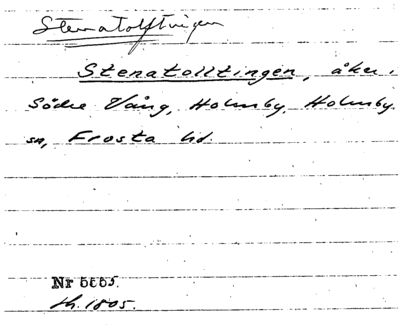 Stenatolftingen
Stenatolltingen, åker,
Södre Vång, Holmby, Holmby
sn, Frosta hd.
Nr 6665.
th. 1805.